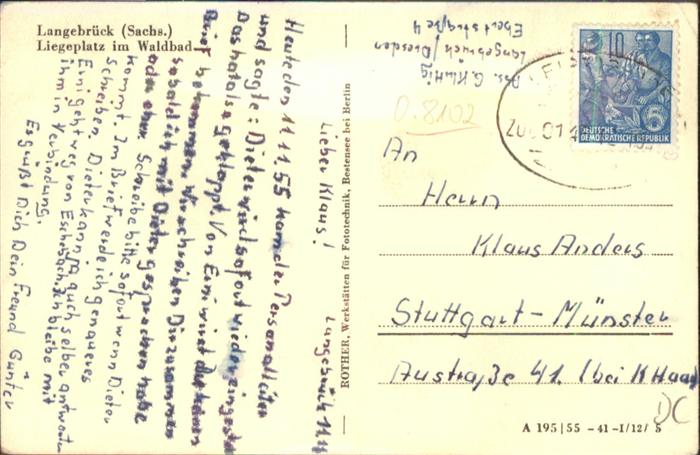 Langebrück (Sachs.)
Liegeplatz im Waldbad
Abs. G. Kluttig
Langebrück / Dresden
Ebertstraße 4
10
DEUTSCHE
DEMOKRATISCHE REPUBLIK
D. 8102
An
Herrn
Klaus Anders
Stuttgart-Münster
Austraße 41 (bei K Haa
DC
A 195|55 -41-I/12/ 5
ROTHER, Werkstätten für Fototechnik, Bestensee bei Berlin
Langebrück 11.11
Lieber Klaus!
Heute den 11.11.55 kam der Personalleiter
und sagte: Dieter wird sofort wieder eingest
Das hat also geklappt. Von Erni wirst du
Brief bekommen. Wir schreiben Dir zusammen
sobald ich mit Dieter gesprochen habe
oder eher. Schreibe bitte sofort wenn Dieter
kommt. Im Brief werde ich genaueres
schreiben. Dieter kann ja auch selber antworten
Erni geht weg von Eschebach. Ich bleibe mit
ihm in Verbindung.
Es grüßt Dich Dein Freund Günter